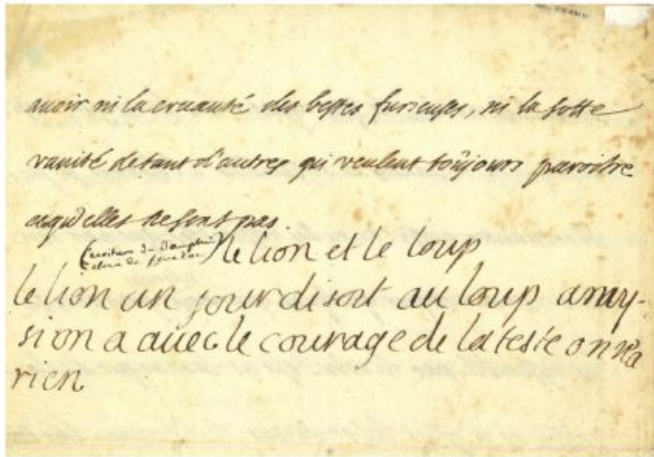 avoir ni la cruauté des bestes furieuses, ni la sotte
vanité de tant d'autres qui veulent toûjours paroitre
ce qu'elles ne sont pas
(ecriture du Dauphin
eleve de Fenelon)
le lion et le loup
le lion un jour disoit au loup amy-
si on a avec le courage de la teste on n'a
rien